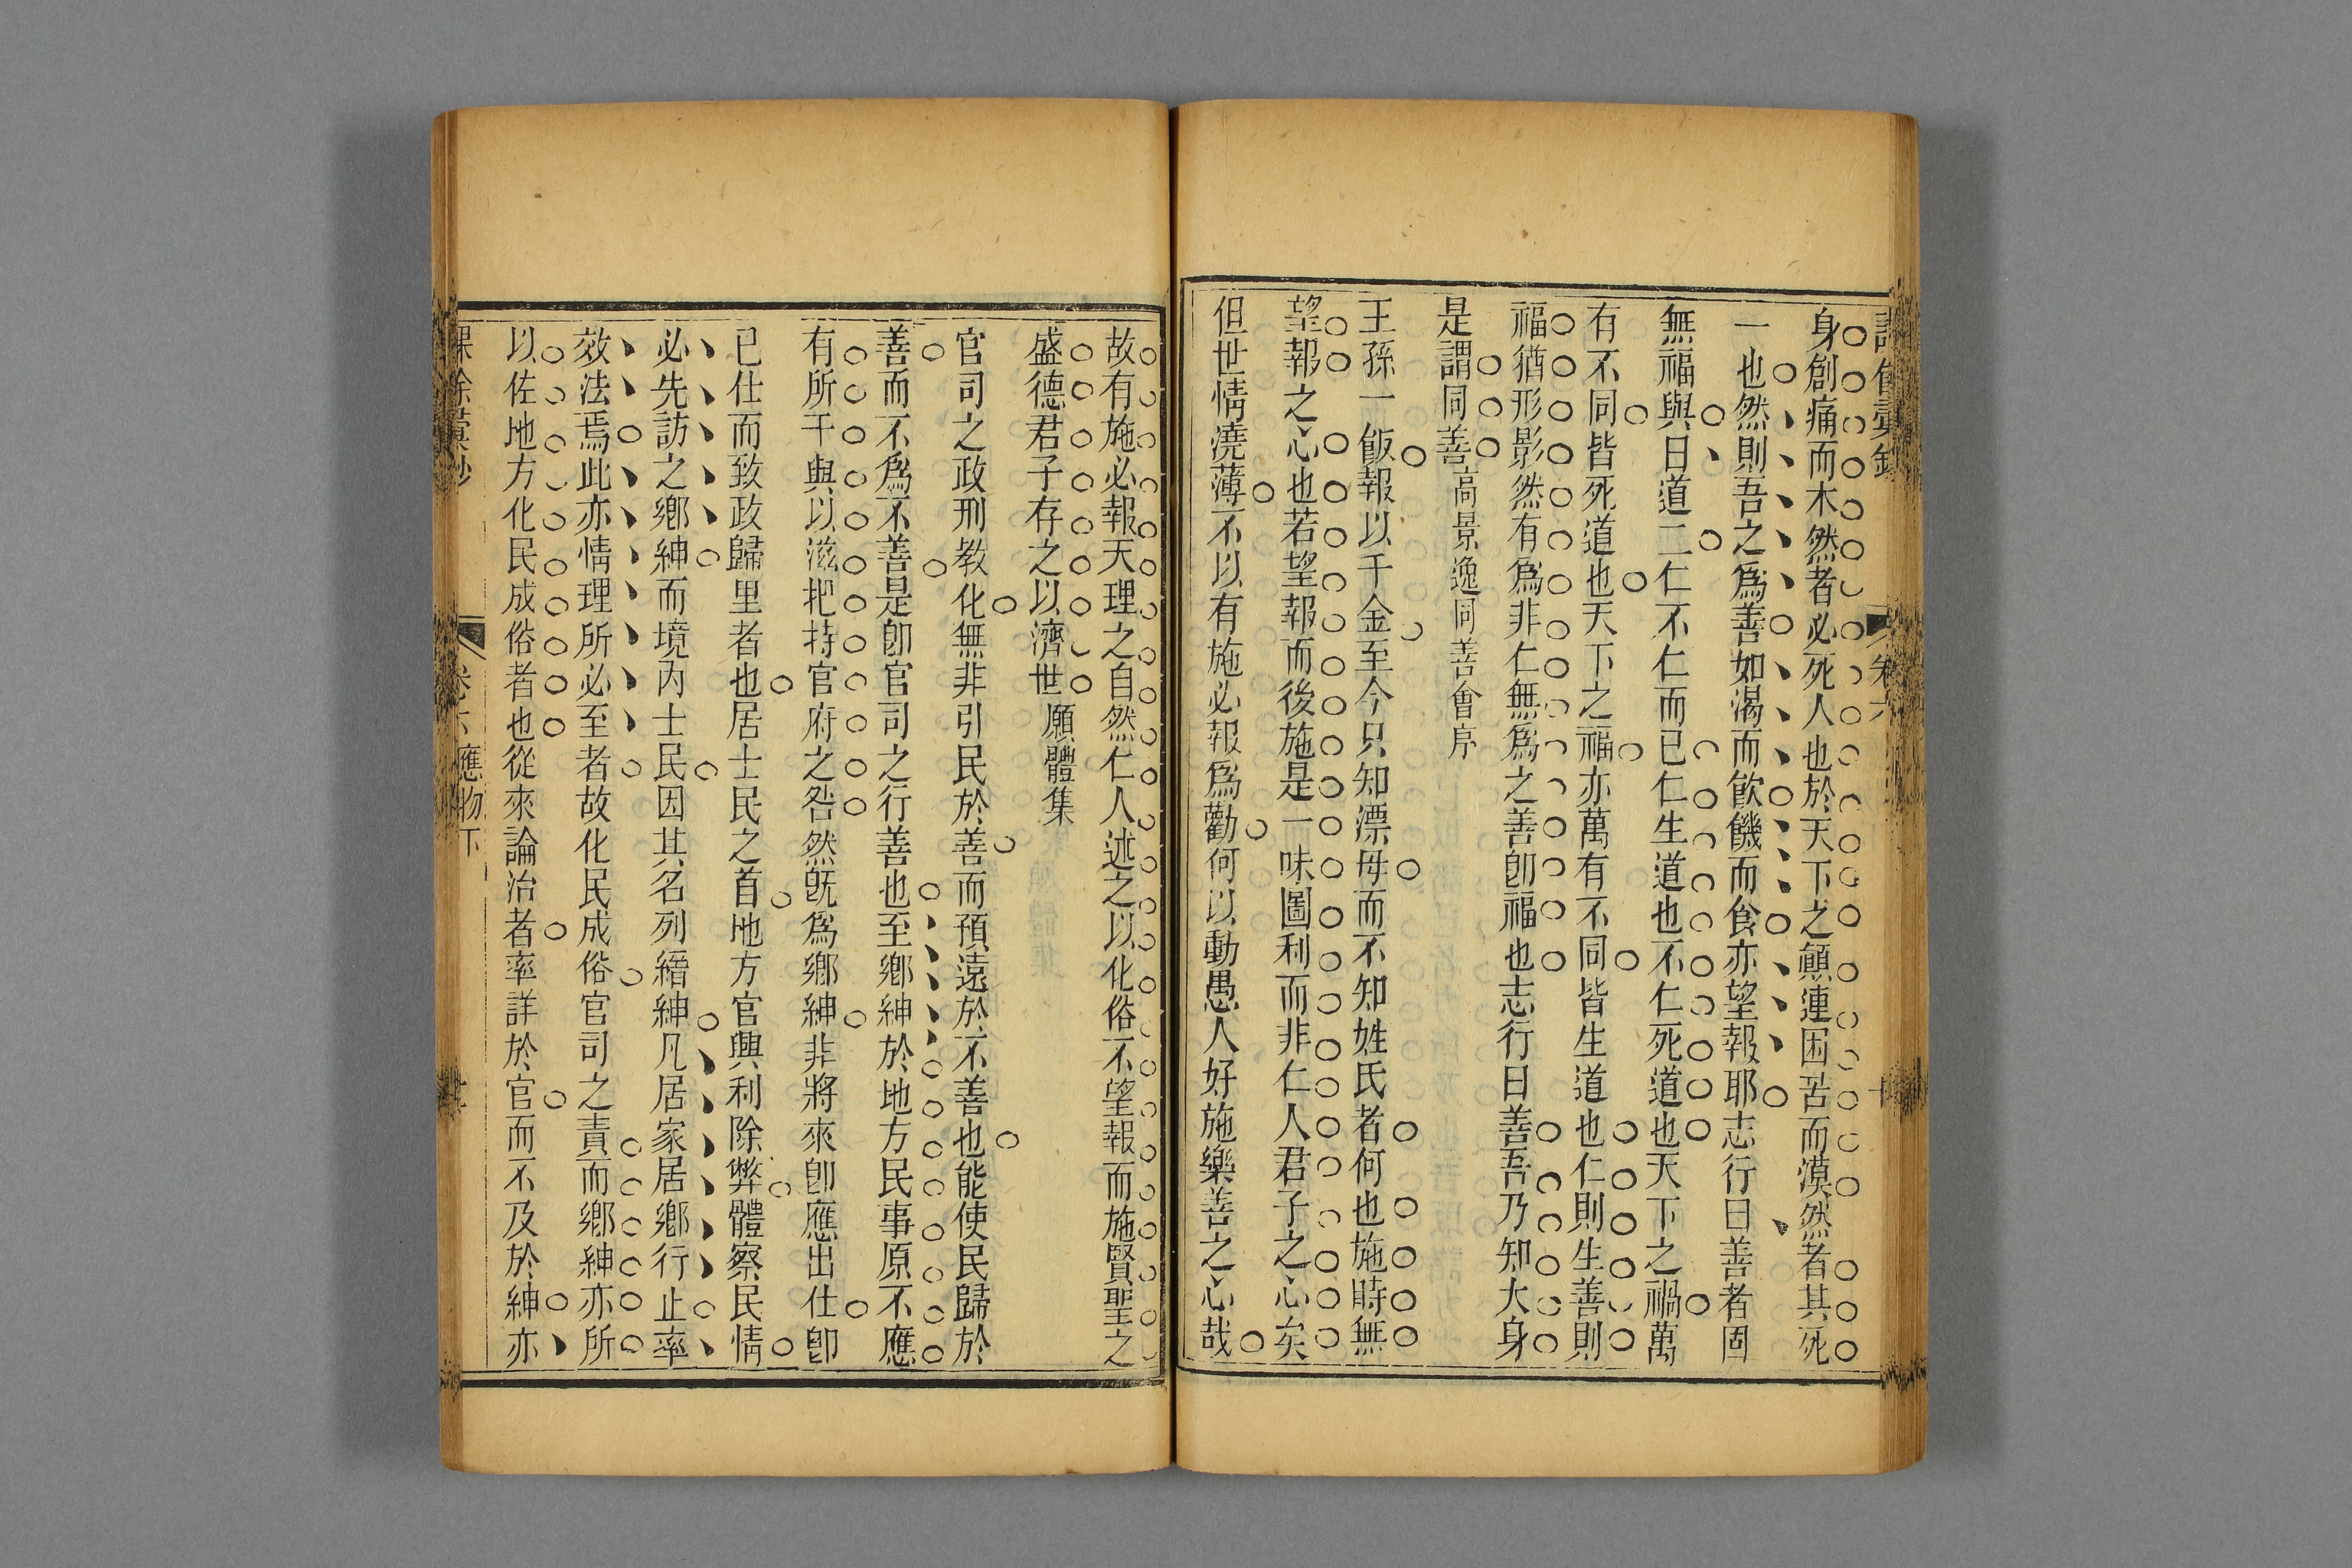 卷六
身創痛而木然者必死人也於天下之顛連困苦而漠然者其死
一也然則吾之爲善如渴而飲饑而食亦望報耶志行曰善者固
無福與曰道二仁不仁而已仁生道也不仁死道也天下之禍萬
有不同皆死道也天下之福亦萬有不同皆生道也仁則生善則
福猶形影然有爲非仁無爲之善卽福也志行曰善吾乃知大身
是謂同善高景逸同善會序
王孫一飯報以千金至今只知漂母而不知姓氏者何也施時無
望報之心也若望報而後施是一味圖利而非仁人君子之心矣
但世情澆薄不以有施必報爲勸何以動愚人好施樂善之心哉
故有施必報天理之自然仁人述之以化俗不望報而施賢聖之
盛德君子存之以濟世願體集
官司之政刑教化無非引民於善而預遠於不善也能使民歸於
善而不爲不善是卽官司之行善也至鄉紳於地方民事原不應
有所干與以滋把持官府之咎然旣爲鄉紳非將來卽應出仕卽
已仕而致政歸里者也居士民之首地方官興利除弊體察民情
必先訪之鄉紳而境內士民因其名列縉紳凡居家居鄉行止率
效法焉此亦情理所必至者故化民成俗官司之責而鄉紳亦所
以佐地方化民成俗者也從來論治者率詳於官而不及於紳亦
課餘彙鈔 卷六 應物下